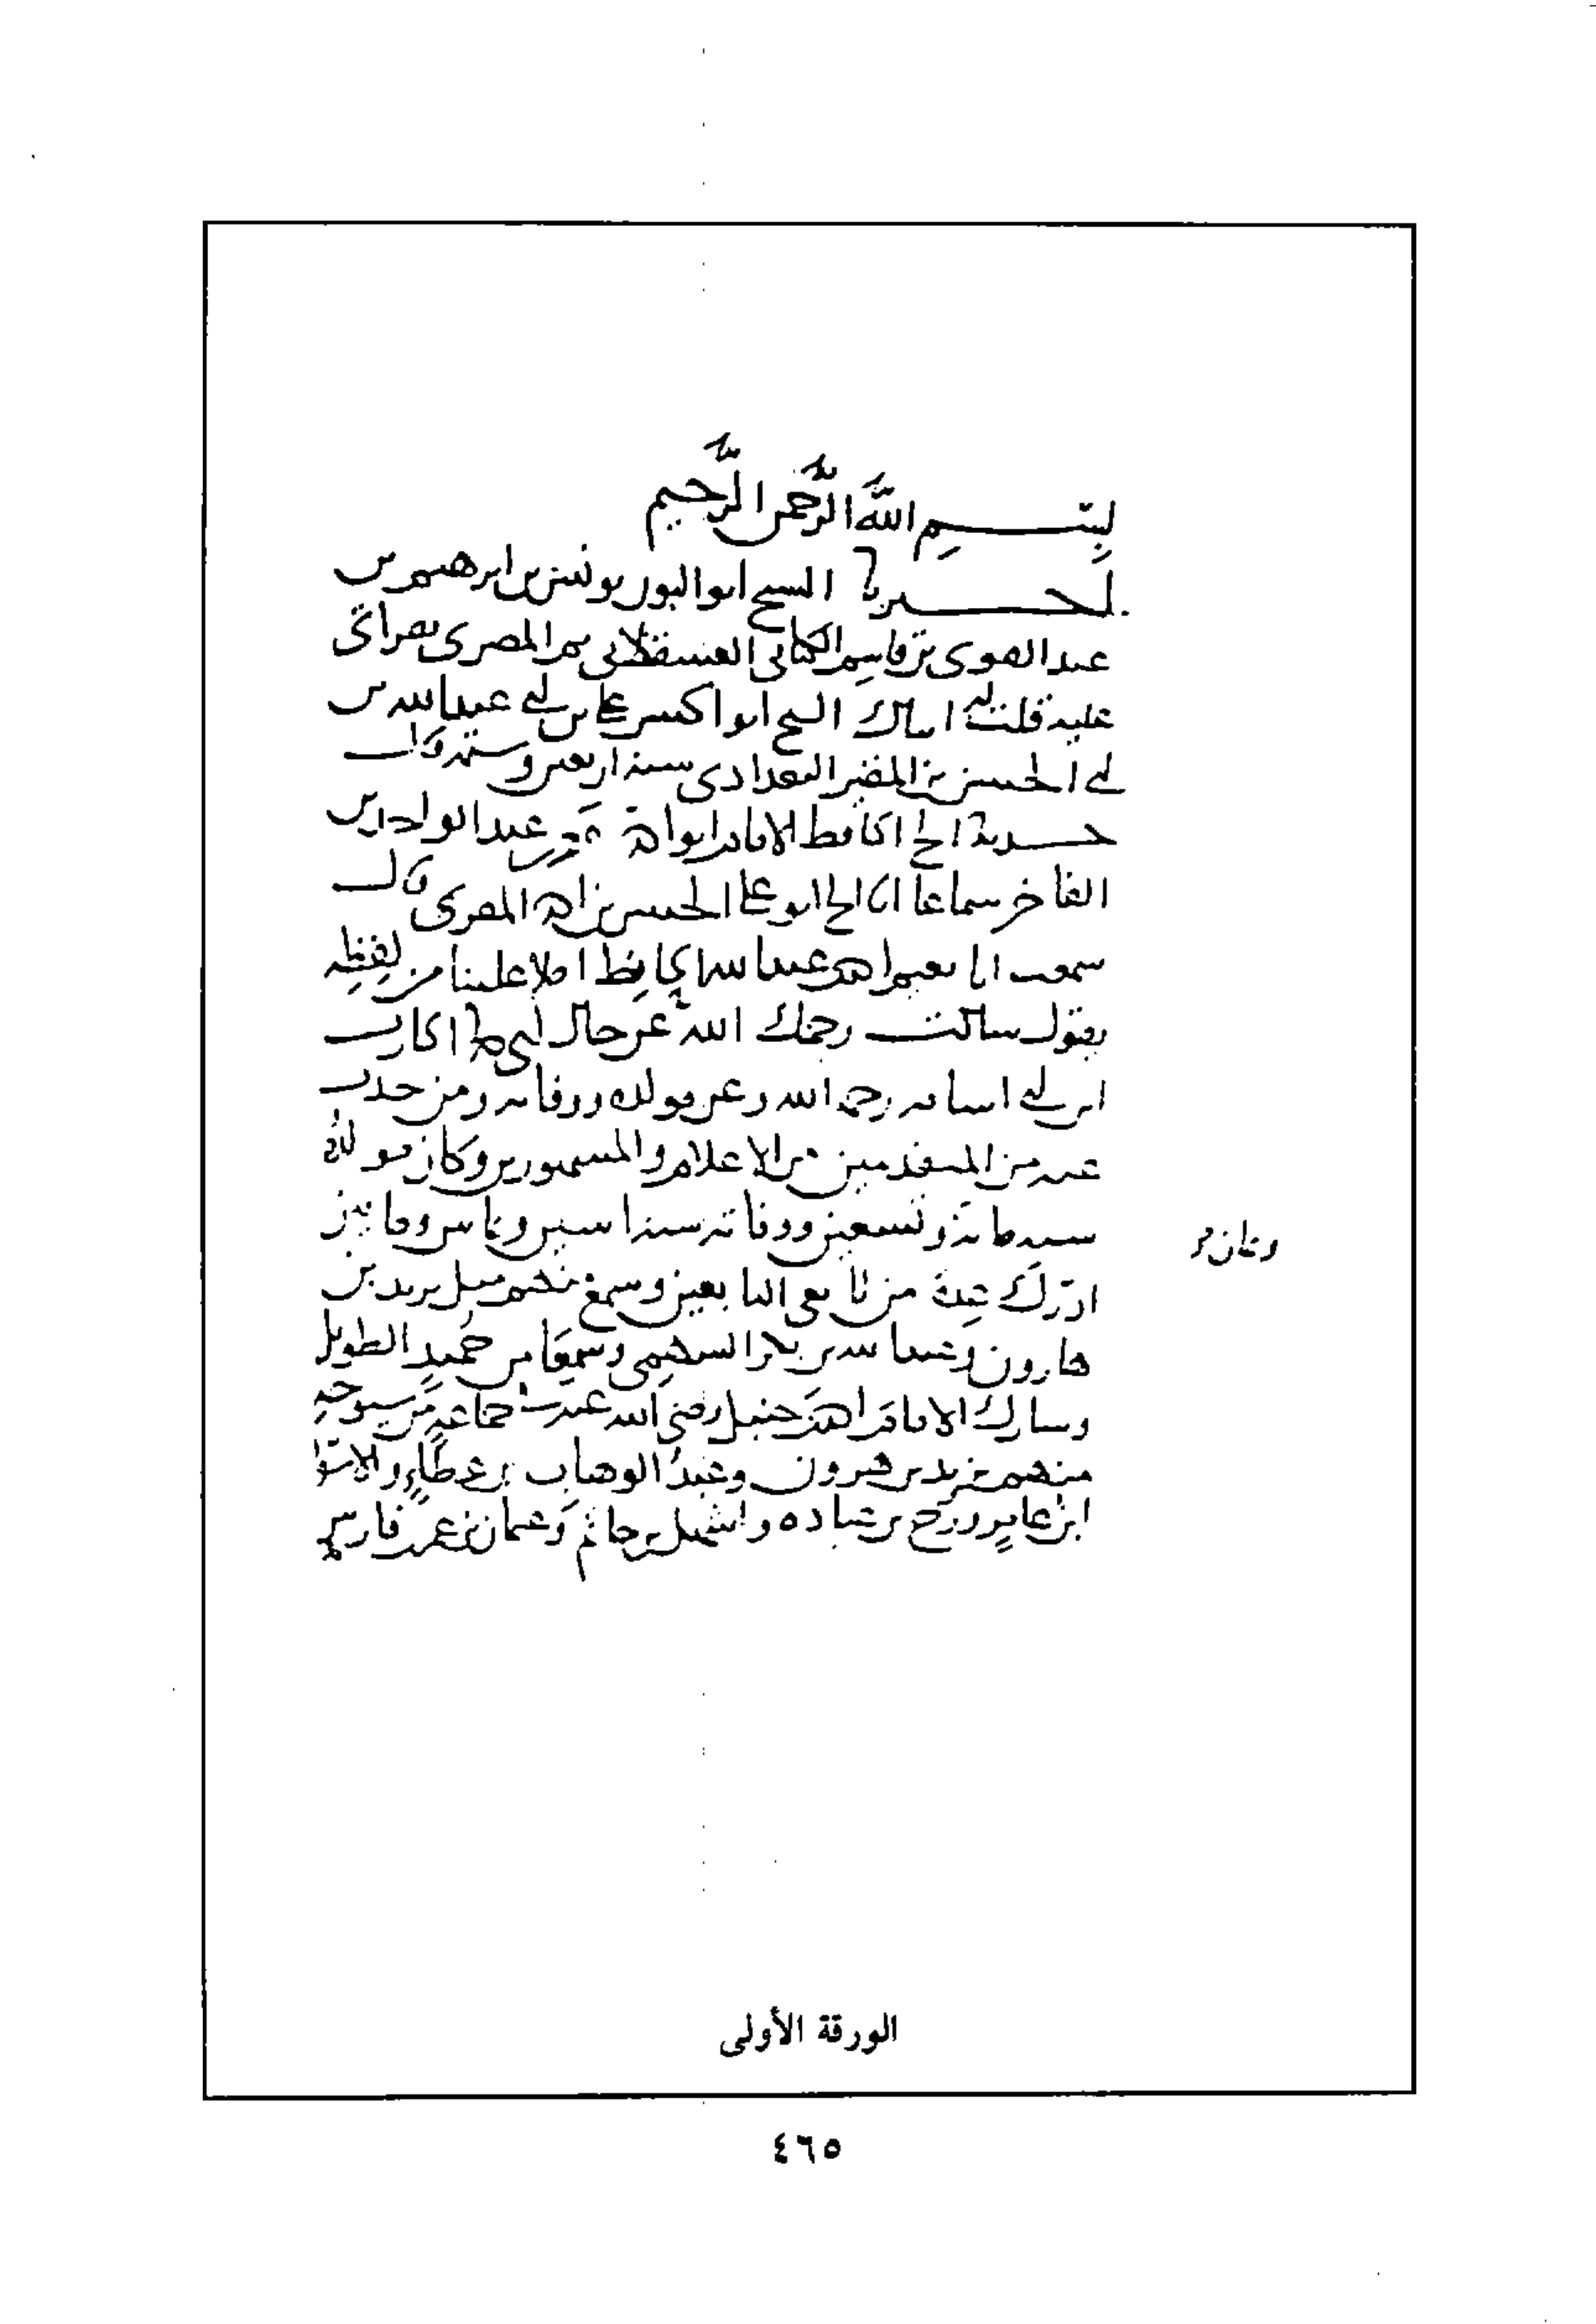 بسم الله الرحمن الرحيم
أخبرنا الشيخ ابو النون يونس بن ابرهيم بن
عبد القوى بن قاسم الكنانى العسقلانى ثم المصرى بقراتى
عليه قلت له انباك الشيخ ابو الحسن على بن ابى عبد الله بن
ابى الحسن بن المقير البغدادى سنة اربعين وستمائة
الحافظ الامام ابو احمد معمر بن عبد الواحد بن
الفاخر سماعا انا ابو على الحسن بن احمد المقرى قال
سمعت ابا نعيم احمد بن عبد الله الحافظ املا علينا من لفظه
يقول سالت رحمك الله عن حال ابى محمد الحارث
ابن ابى اسامه رحمه الله وعن مولده ووفاته ومن حدث
عنه من المتقدمين من الاعلام والمشهورين وكان مولده
سنه مائة وتسعين ووفاته سنة اثنين وثمانين ومايتين
وثمان
ادرك عدة من تابعى التابعين وسمع منهم مثل يزيد بن
هارون وعبد الله بن بكر السهمى وسمعا من حميد الطويل
وشارك الامام احمد بن حنبل رضى الله عنه فى جماعة من شيوخه
منهم يزيد بن هرون وعبد الوهاب بن عطاء والاسود
ابن عامر وروح بن عباده واشهل بن حاتم وعثمان بن عمر بن فارس
الورقة الأولى
٤٦٥